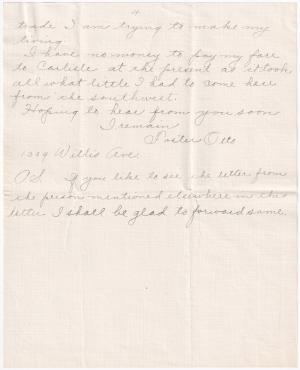 4
trade I am trying to make my
living.
I have no money to pay my fare
to Carlisle at the present as it took
all what little I had to come here
from the southwest.
Hoping to hear from you soon
I remain
Foster Otto
1329 Willis Ave.
P.S. If you like to see the letter from
the person mentioned elsewhere in this
letter I shall be glad to forward same.